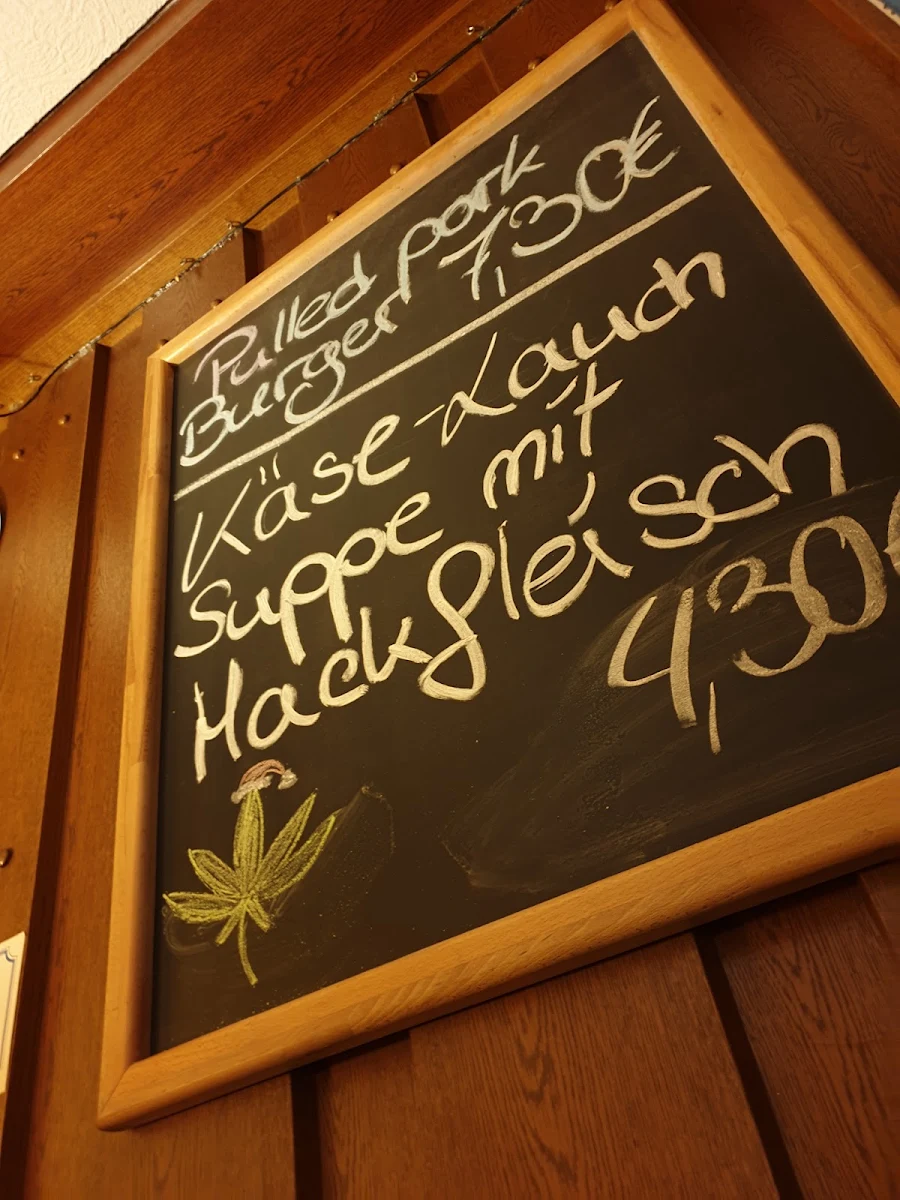 Pulled pork
Burger 7,30€
Käse-Lauch
Suppe mit
Hackfleisch
4,30€